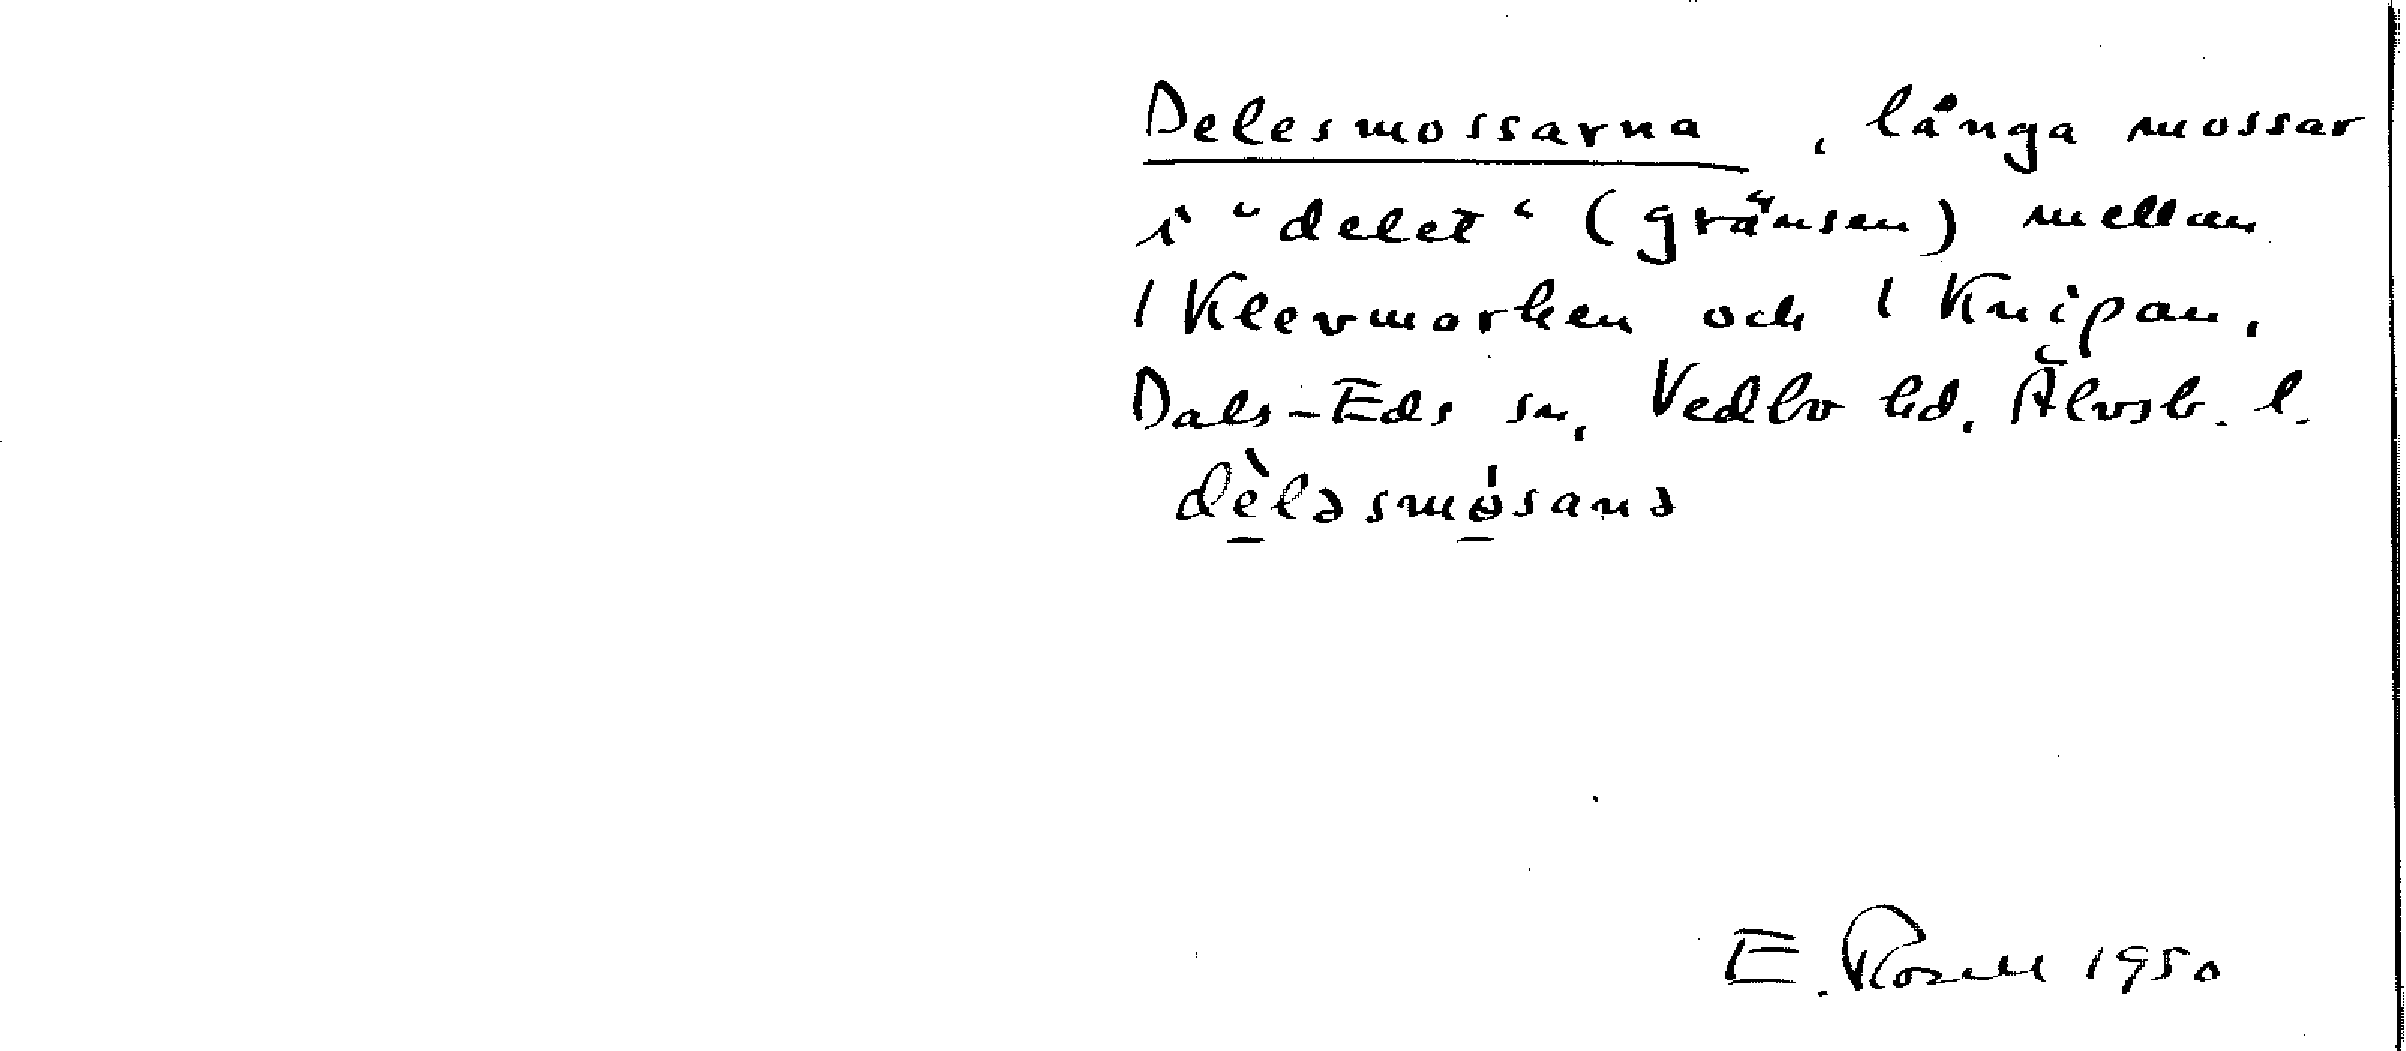 Delesmossarna, långa mossar
i "delet" (gränsen) mellan
1 Klevmarken och 1 Knipan,
Dals-Eds sn, Vedbo hd, Älvsb. l.
dèləsmósanə
E. Rosell 1950